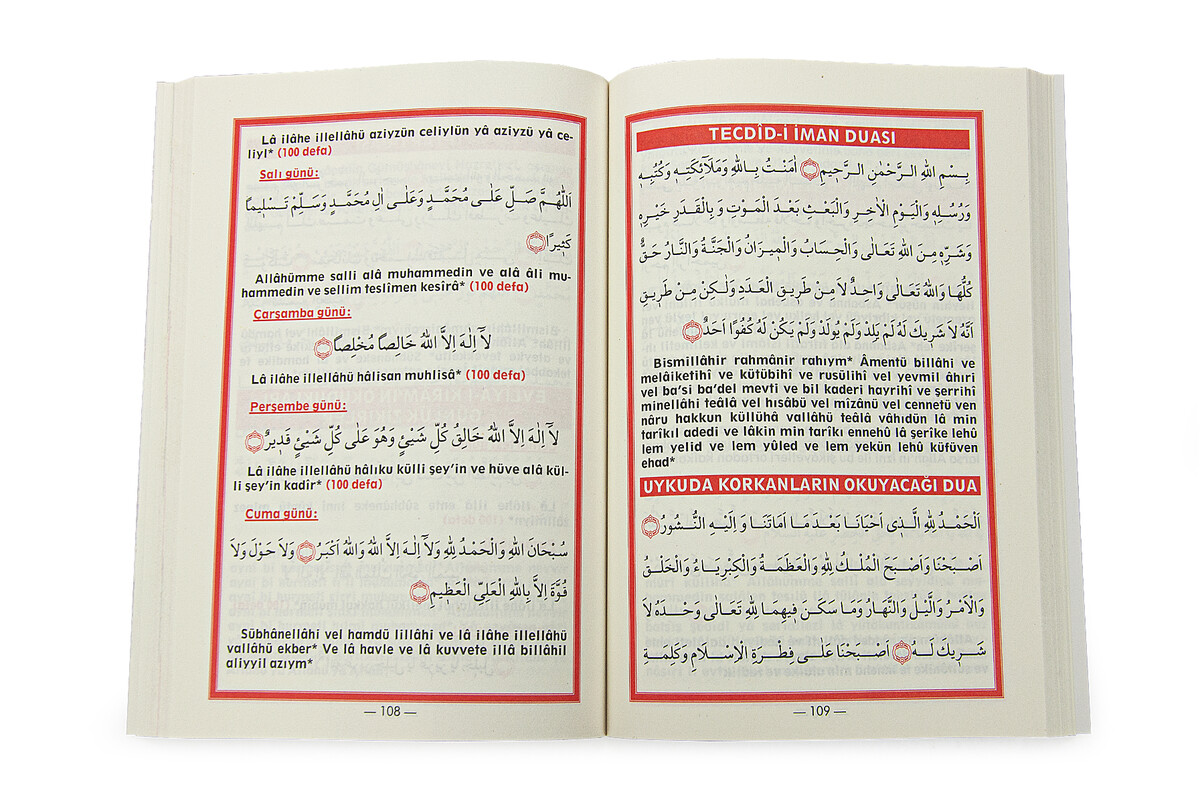 Lâ ilâhe illellâhü aziyzün celiylün yâ aziyzü yâ ce-
liyl* (100 defa)
Salı günü:
اَللّٰهُمَّ صَلِّ عَلٰى مُحَمَّدٍ وَعَلٰى اٰلِ مُحَمَّدٍ وَسَلِّمْ تَسْلٖيمًا
كَثٖيرًا
Allâhümme salli alâ muhammedin ve alâ âli mu-
hammedin ve sellim teslîmen kesîrâ* (100 defa)
Çarşamba günü:
لَآ اِلٰهَ اِلَّا اللّٰهُ خَالِصًا مُخْلِصًا
Lâ ilâhe illellâhü hâlisan muhlisâ* (100 defa)
Perşembe günü:
لَآ اِلٰهَ اِلَّا اللّٰهُ خَالِقُ كُلِّ شَيْئٍ وَهُوَ عَلٰى كُلِّ شَيْئٍ قَدٖيرٌ
Lâ ilâhe illellâhü hâlıku külli şey'in ve hüve alâ kül-
li şey'in kadîr* (100 defa)
Cuma günü:
سُبْحَانَ اللّٰهِ وَالْحَمْدُ لِلّٰهِ وَلَآ اِلٰهَ اِلَّا اللّٰهُ وَاللّٰهُ اَكْبَرُ وَلَا حَوْلَ وَلَا
قُوَّةَ اِلَّا بِاللّٰهِ الْعَلِيِّ الْعَظٖيمِ
Sübhânellâhi vel hamdü lillâhi ve lâ ilâhe illellâhü
vallâhü ekber* Ve lâ havle ve lâ kuvvete illâ billâhil
aliyyil azıym*
— 108 —
TECDÎD-İ İMAN DUASI
بِسْمِ اللّٰهِ الرَّحْمٰنِ الرَّحٖيمِ اٰمَنْتُ بِاللّٰهِ وَمَلَآئِكَتِهٖ وَكُتُبِهٖ
وَرُسُلِهٖ وَالْيَوْمِ الْاٰخِرِ وَالْبَعْثِ بَعْدَ الْمَوْتِ وَبِالْقَدَرِ خَيْرِهٖ
وَشَرِّهٖ مِنَ اللّٰهِ تَعَالٰى وَالْحِسَابُ وَالْمٖيزَانُ وَالْجَنَّةُ وَالنَّارُ حَقٌّ
كُلُّهَا وَاللّٰهُ تَعَالٰى وَاحِدٌ لَا مِنْ طَرٖيقِ الْعَدَدِ وَلٰكِنْ مِنْ طَرٖيقِ
اَنَّهُ لَا شَرٖيكَ لَهُ لَمْ يَلِدْ وَلَمْ يُولَدْ وَلَمْ يَكُنْ لَهُ كُفُوًا اَحَدٌ
Bismillâhir rahmânir rahıym* Âmentü billâhi ve
melâiketihî ve kütübihî ve rusülihî vel yevmil âhıri
vel ba'si ba'del mevti ve bil kaderi hayrihî ve şerrihî
minellâhi teâlâ vel hısâbü vel mîzânü vel cennetü ven
nâru hakkun küllühâ vallâhü teâlâ vâhıdün lâ min
tarîkıl adedi ve lâkin min tarîkı ennehû lâ şerîke lehû
lem yelid ve lem yûled ve lem yekün lehû küfüven
ehad*
UYKUDA KORKANLARIN OKUYACAĞI DUA
اَلْحَمْدُ لِلّٰهِ الَّذٖى اَحْيَانَا بَعْدَمَا اَمَاتَنَا وَاِلَيْهِ النُّشُورُ
اَصْبَحْنَا وَاَصْبَحَ الْمُلْكُ لِلّٰهِ وَالْعَظَمَةُ وَالْكِبْرِيَاءُ وَالْخَلْقُ
وَالْاَمْرُ وَالَّيْلُ وَالنَّهَارُ وَمَا سَكَنَ فٖيهِمَا لِلّٰهِ تَعَالٰى وَحْدَهُ لَا
شَرٖيكَ لَهُ اَصْبَحْنَا عَلٰى فِطْرَةِ الْاِسْلَامِ وَكَلِمَةِ
— 109 —